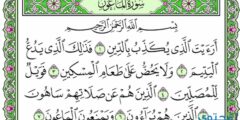 سورة الماعون
بسم الله الرحمن الرحيم
أرءيت الذي يكذب بالدين ١ فذلك الذي يدع
اليتيم ٢ ولا يحض على طعام المسكين ٣ فويل
للمصلين ٤ الذين هم عن صلاتهم ساهون
٥ الذين هم يراءون ٦ ويمنعون الماعون ٧